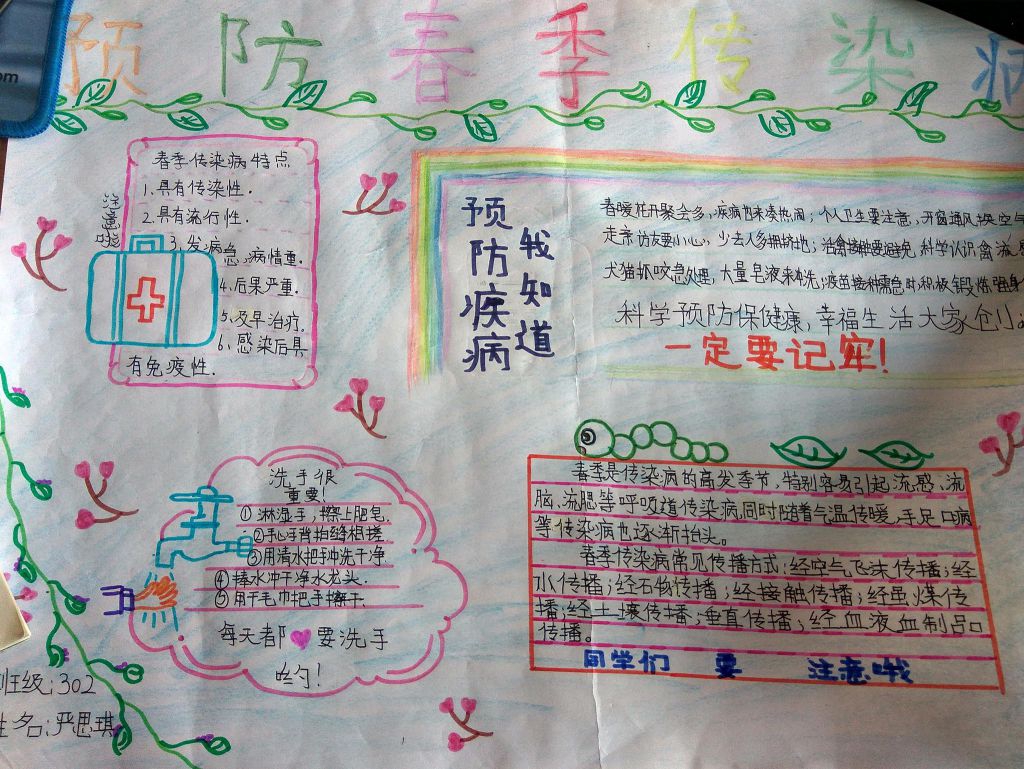 预防春季传染病
春季传染病特点
1.具有传染性.
2.具有流行性.
3.发病急,病情重.
4.后果严重.
5.及早治疗.
6.感染后具
有免疫性.
注意啦
我知道
预防疾病
春暖花开聚会多,疾病也来凑热闹;个人卫生要注意,开窗通风换空气
走亲访友要小心,少去人多拥挤地;活禽接种要避免,科学认识禽流感
犬猫抓咬急处理,大量皂液来冲洗;疫苗接种需及时,积极锻炼强身
科学预防保健康,幸福生活大家创
一定要记牢!
洗手很
重要!
①淋湿手,擦上肥皂.
②手心手背指缝相搓
③用清水把手冲洗干净.
④捧水冲干净水龙头.
⑤用干毛巾把手擦干.
每天都要洗手
哟!
春季是传染病的高发季节,特别容易引起流感、流
脑、流腮等呼吸道传染病,同时随着气温传暖,手足口病
等传染病也逐渐抬头。
春季传染病常见传播方式:经空气飞沫传播;经
水传播;经石物传播;经接触传播;经虽煤传
播;经土壤传播;垂直传播;经血液血制品
传播。
同学们 要 注意哦
班级:302
姓名:严思琪
om